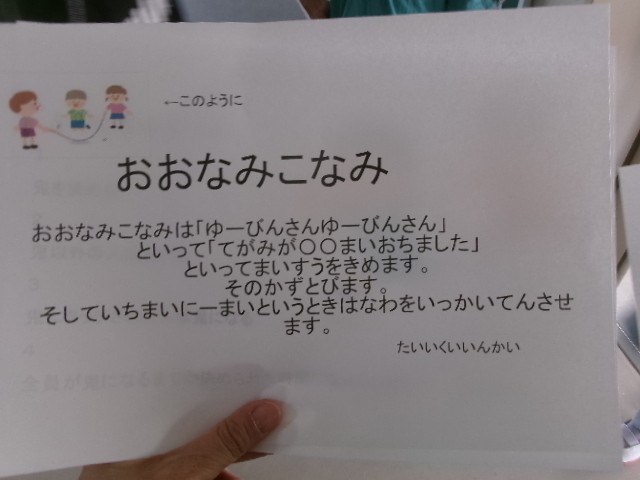 ←このように
おおなみこなみ
おおなみこなみは「ゆーびんさんゆーびんさん」
といって「てがみが〇〇まいおちました」
といってまいすうをきめます。
そのかずとびます。
そしていちまいに一まいというときはなわをいっかいてんさせ
ます。
たいいくいいんかい